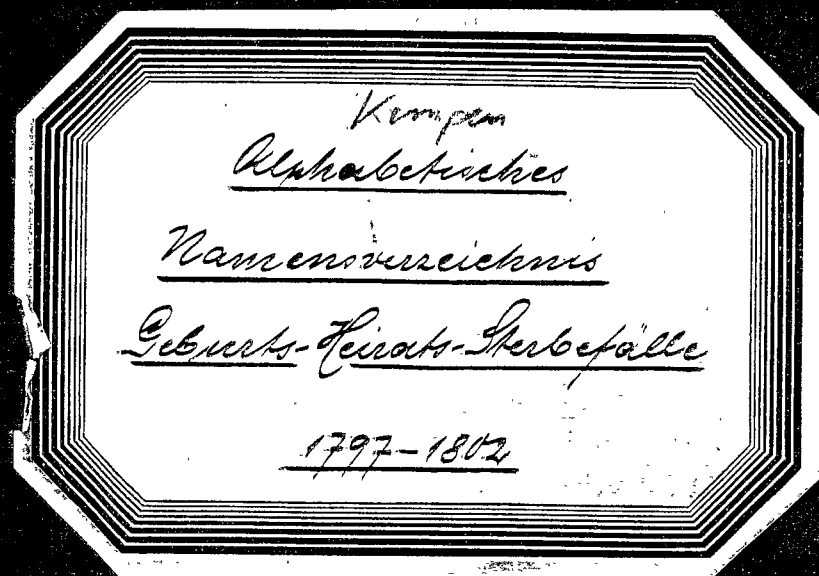 Kempen
Alphabetisches
Namensverzeichnis
Geburts-Heirats-Sterbefälle
1797-1802